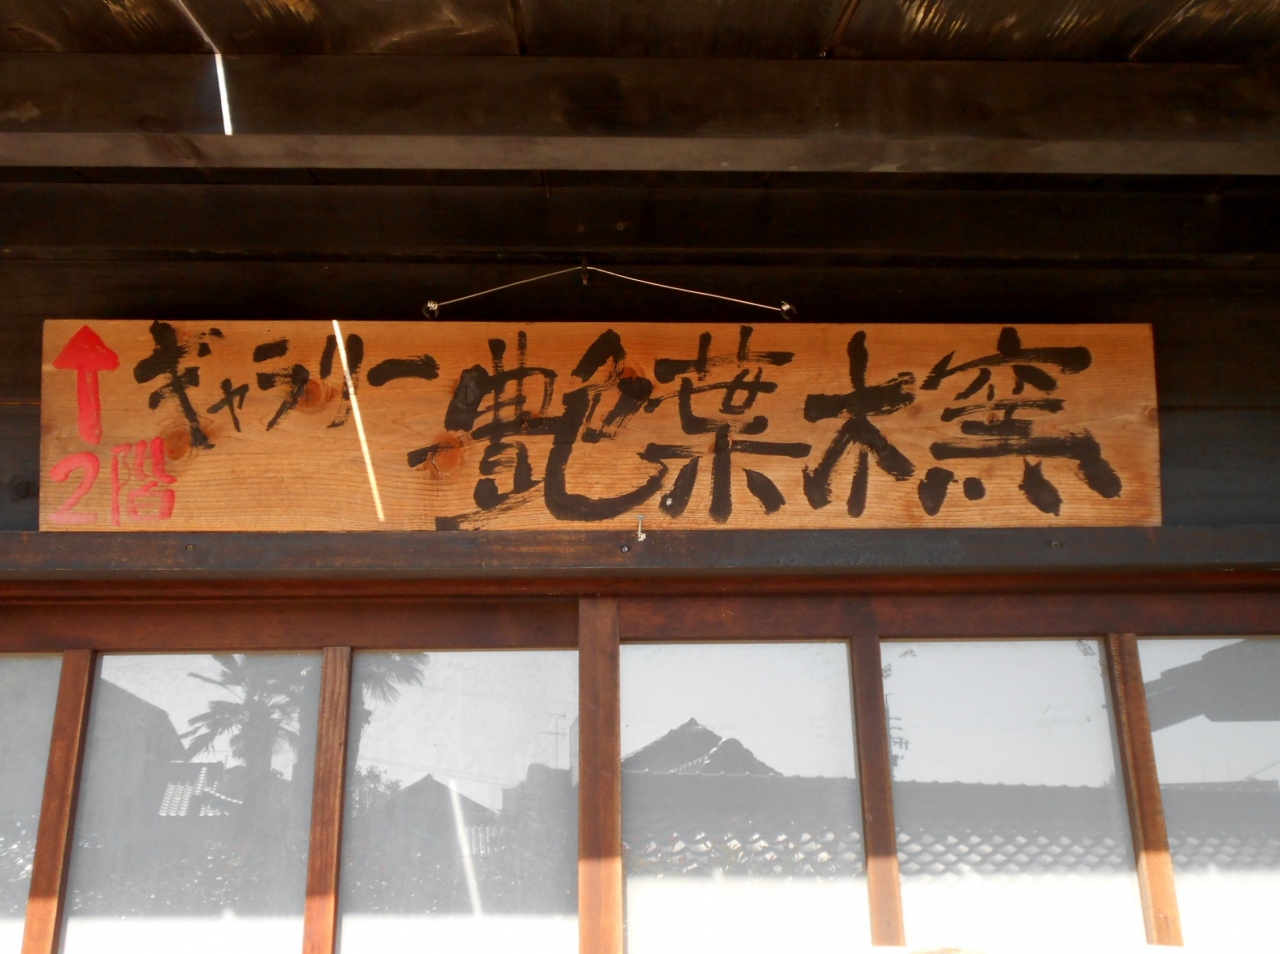 ↑ ギャラリー 艶葉木窯
2階